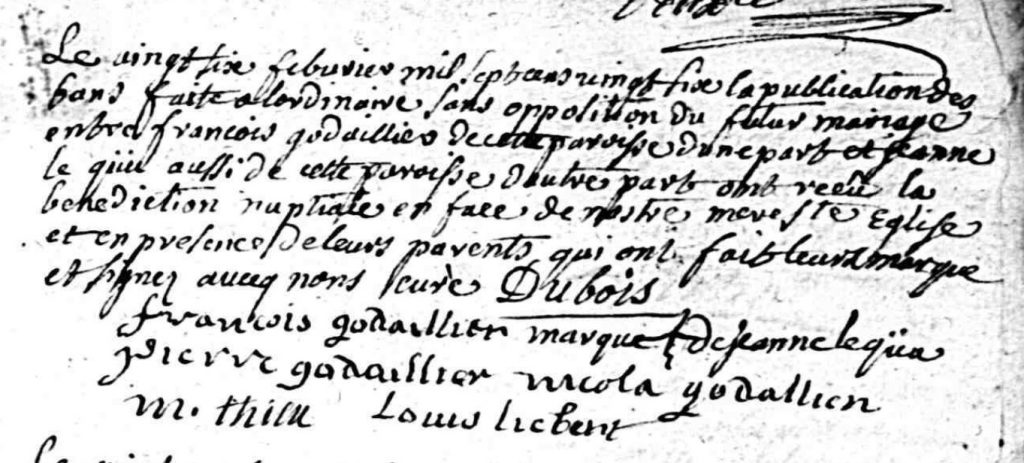 Le vingt six feburier mil sept cens vingt six la publication des
bans faite a lordinaire sans opposition du futur mariage
entre francois godaillier de cette paroisse dune part et jeanne
le qüu aussi de cette paroisse dautre part ont receü la
benediction nuptiale en face de nostre mere ste Eglise
et en presence de leurs parents qui ont fait leurs marque
et signez avecq nous curé Dubois
francois godaillier marque de jeanne le qüa
pierre godaillier nicola godallien
m. thieu Louis liebert